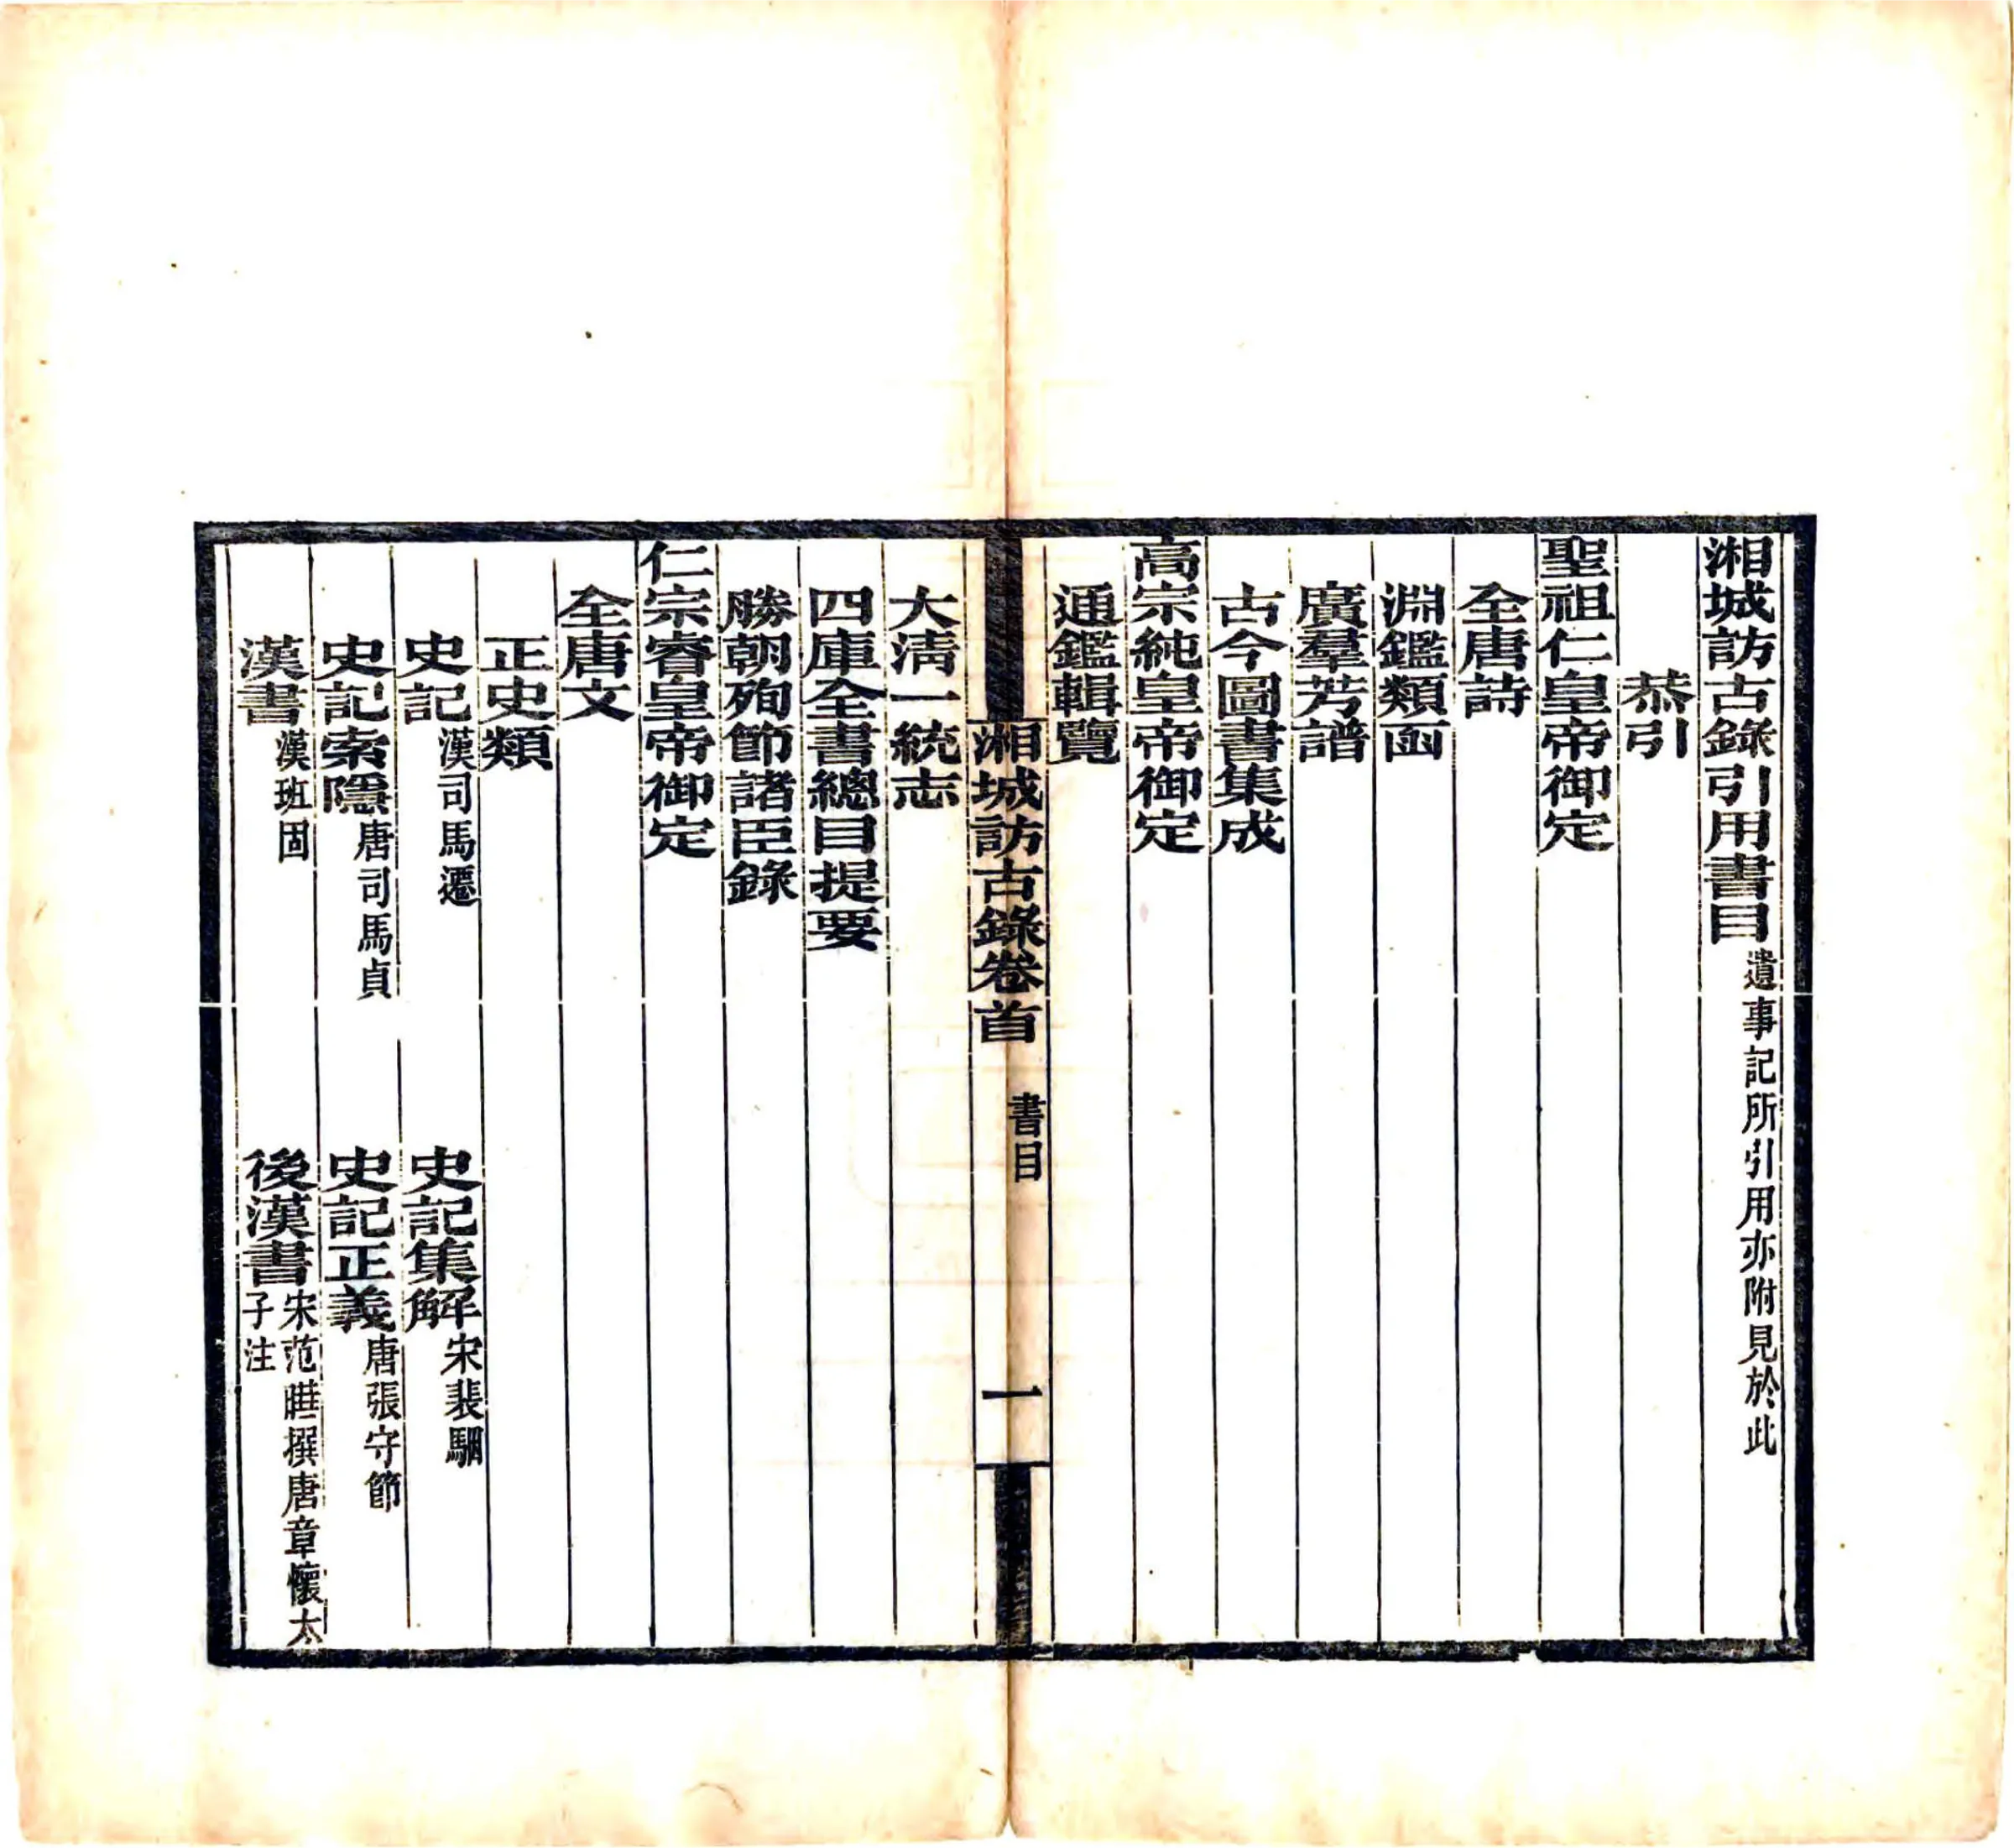 湘城訪古錄引用書目遺事記所引用亦附見於此
恭引
聖祖仁皇帝御定
全唐詩
淵鑑類函
廣羣芳譜
古今圖書集成
高宗純皇帝御定
通鑑輯覽
湘城訪古錄卷首 書目 一
大淸一統志
四庫全書總目提要
勝朝殉節諸臣錄
仁宗睿皇帝御定
全唐文
正史類
史記漢司馬遷 史記集解宋裴駰
史記索隱唐司馬貞 史記正義唐張守節
漢書漢班固 後漢書宋范曄撰唐章懷太
子注